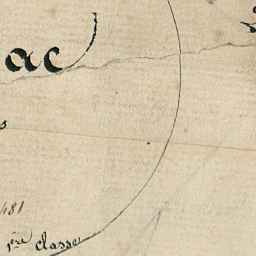 ac
481
1ère classe